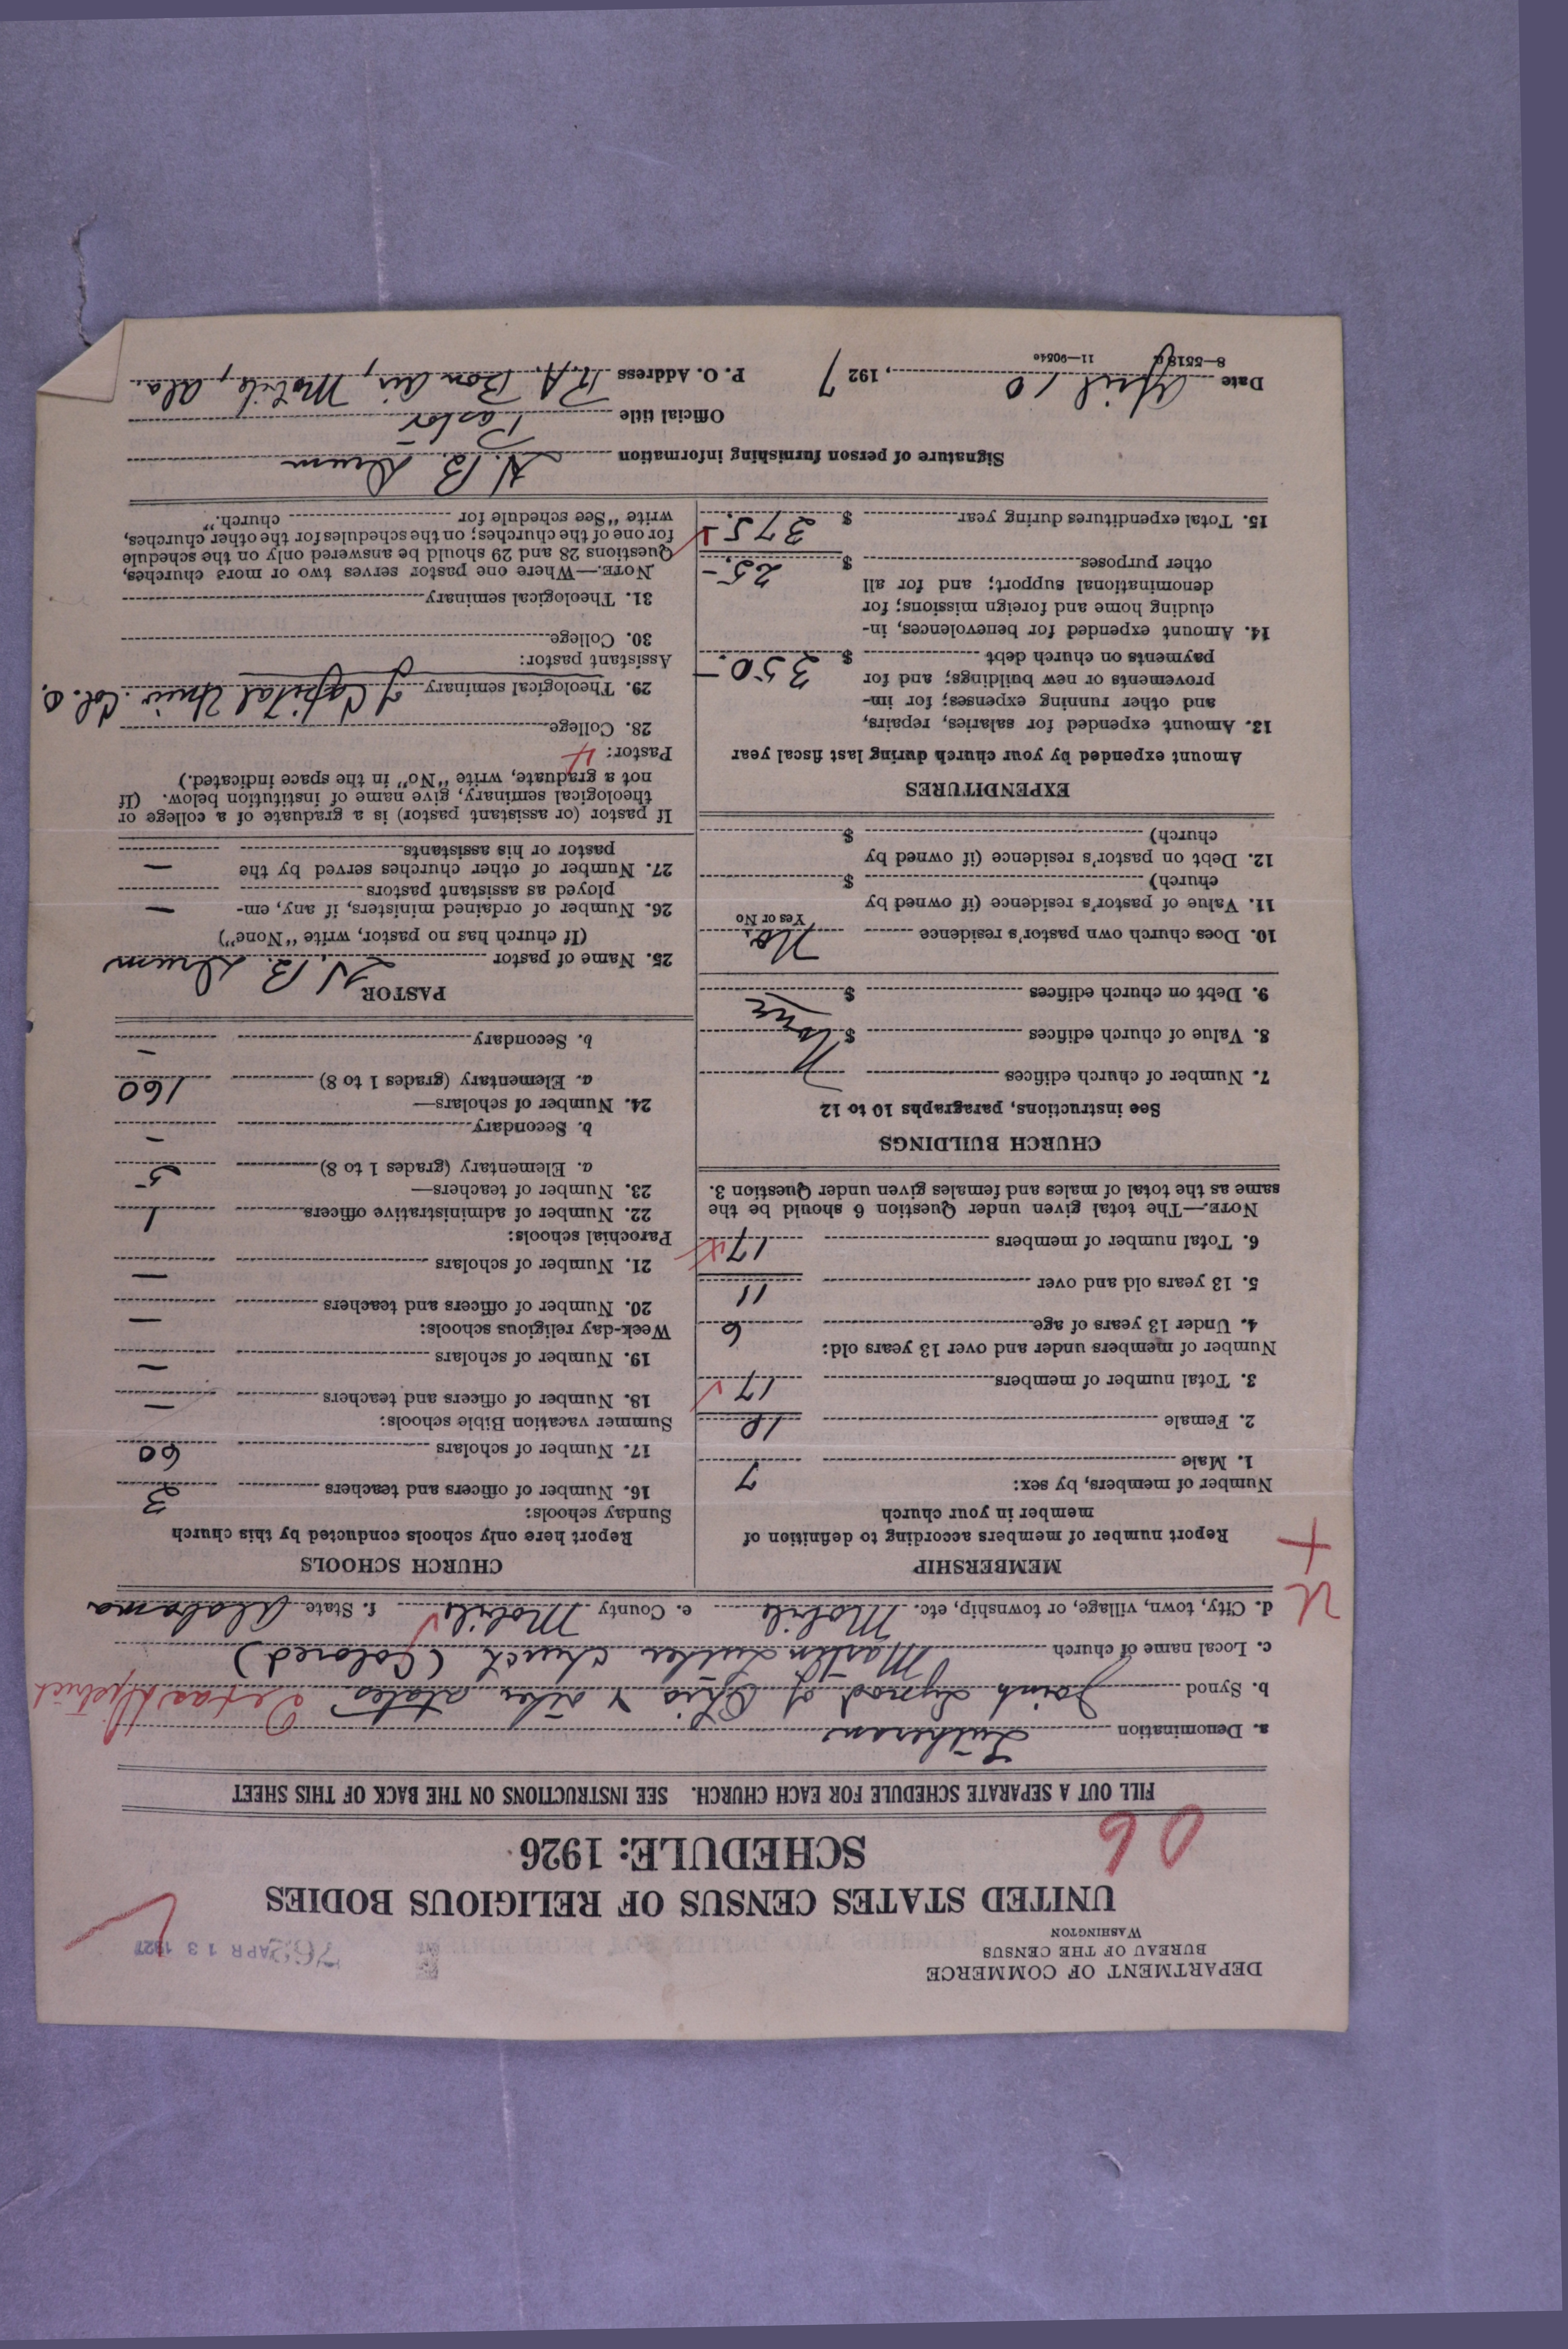 DEPARTMENT OF COMMERCE
BUREAU OF THE CENSUS
WASHINGTON
APR 13 1927
UNITED STATES CENSUS OF RELIGIOUS BODIES
SCHEDULE: 1926
06
FILL OUT A SEPARATE SCHEDULE FOR EACH CHURCH. SEE INSTRUCTIONS ON THE BACK OF THIS SHEET
a. Denomination Lutheran
b. Synod Joint Synod of Ohio & other states Texas District
c. Local name of church Martin Luther Church (Colored)
d. City, town, village, or township, etc. Mobile e. County Mobile f. State Alabama
U
+
MEMBERSHIP
Report number of members according to definition of
member in your church
Number of members, by sex:
1. Male 7
2. Female 10
3. Total number of members 17
Number of members under and over 13 years old:
4. Under 13 years of age 6
5. 13 years old and over 11
6. Total number of members 17
NOTE.—The total given under Question 6 should be the
same as the total of males and females given under Question 3.
CHURCH BUILDINGS
See instructions, paragraphs 10 to 12
7. Number of church edifices
8. Value of church edifices $ None
9. Debt on church edifices $
10. Does church own pastor's residence No.
Yes or No
11. Value of pastor's residence (if owned by
church) $
12. Debt on pastor's residence (if owned by
church) $
EXPENDITURES
Amount expended by your church during last fiscal year
13. Amount expended for salaries, repairs,
and other running expenses; for im-
provements or new buildings; and for
payments on church debt $ 350.—
14. Amount expended for benevolences, in-
cluding home and foreign missions; for
denominational support; and for all
other purposes $ 25.—
15. Total expenditures during year $ 375.
CHURCH SCHOOLS
Report here only schools conducted by this church
Sunday schools:
16. Number of officers and teachers 3
17. Number of scholars 60
Summer vacation Bible schools:
18. Number of officers and teachers —
19. Number of scholars —
Week-day religious schools:
20. Number of officers and teachers —
21. Number of scholars —
Parochial schools:
22. Number of administrative officers 1
23. Number of teachers—
a. Elementary (grades 1 to 8) 5
b. Secondary —
24. Number of scholars—
a. Elementary (grades 1 to 8) 160
b. Secondary —
PASTOR
25. Name of pastor N. B. Drum
(If church has no pastor, write "None")
26. Number of ordained ministers, if any, em-
ployed as assistant pastors —
27. Number of other churches served by the
pastor or his assistants —
If pastor (or assistant pastor) is a graduate of a college or
theological seminary, give name of institution below. (If
not a graduate, write "No" in the space indicated.)
Pastor: 4
28. College
29. Theological seminary of Capital Univ. Col. O.
Assistant pastor:
30. College
31. Theological seminary
NOTE.—Where one pastor serves two or more churches,
Questions 28 and 29 should be answered only on the schedule
for one of the churches; on the schedules for the other churches,
write "See schedule for church."
Signature of person furnishing information N. B. Drum
Official title Pastor
Date April 10, 1927 P. O. Address R. A. Bon Air, Mobile, Ala.
8—5518 11—9054